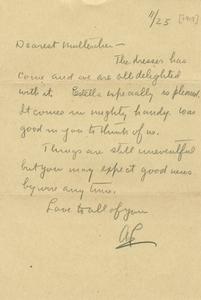 11/25 [1917]
Dearest Mütterchen —
The dresser has
come and we are all delighted
with it. Estella especially is pleased.
It comes in mighty handy. Was
good in you to think of us.
Things are still uneventful
but you may expect good news
by wire any time.
Love to all of you